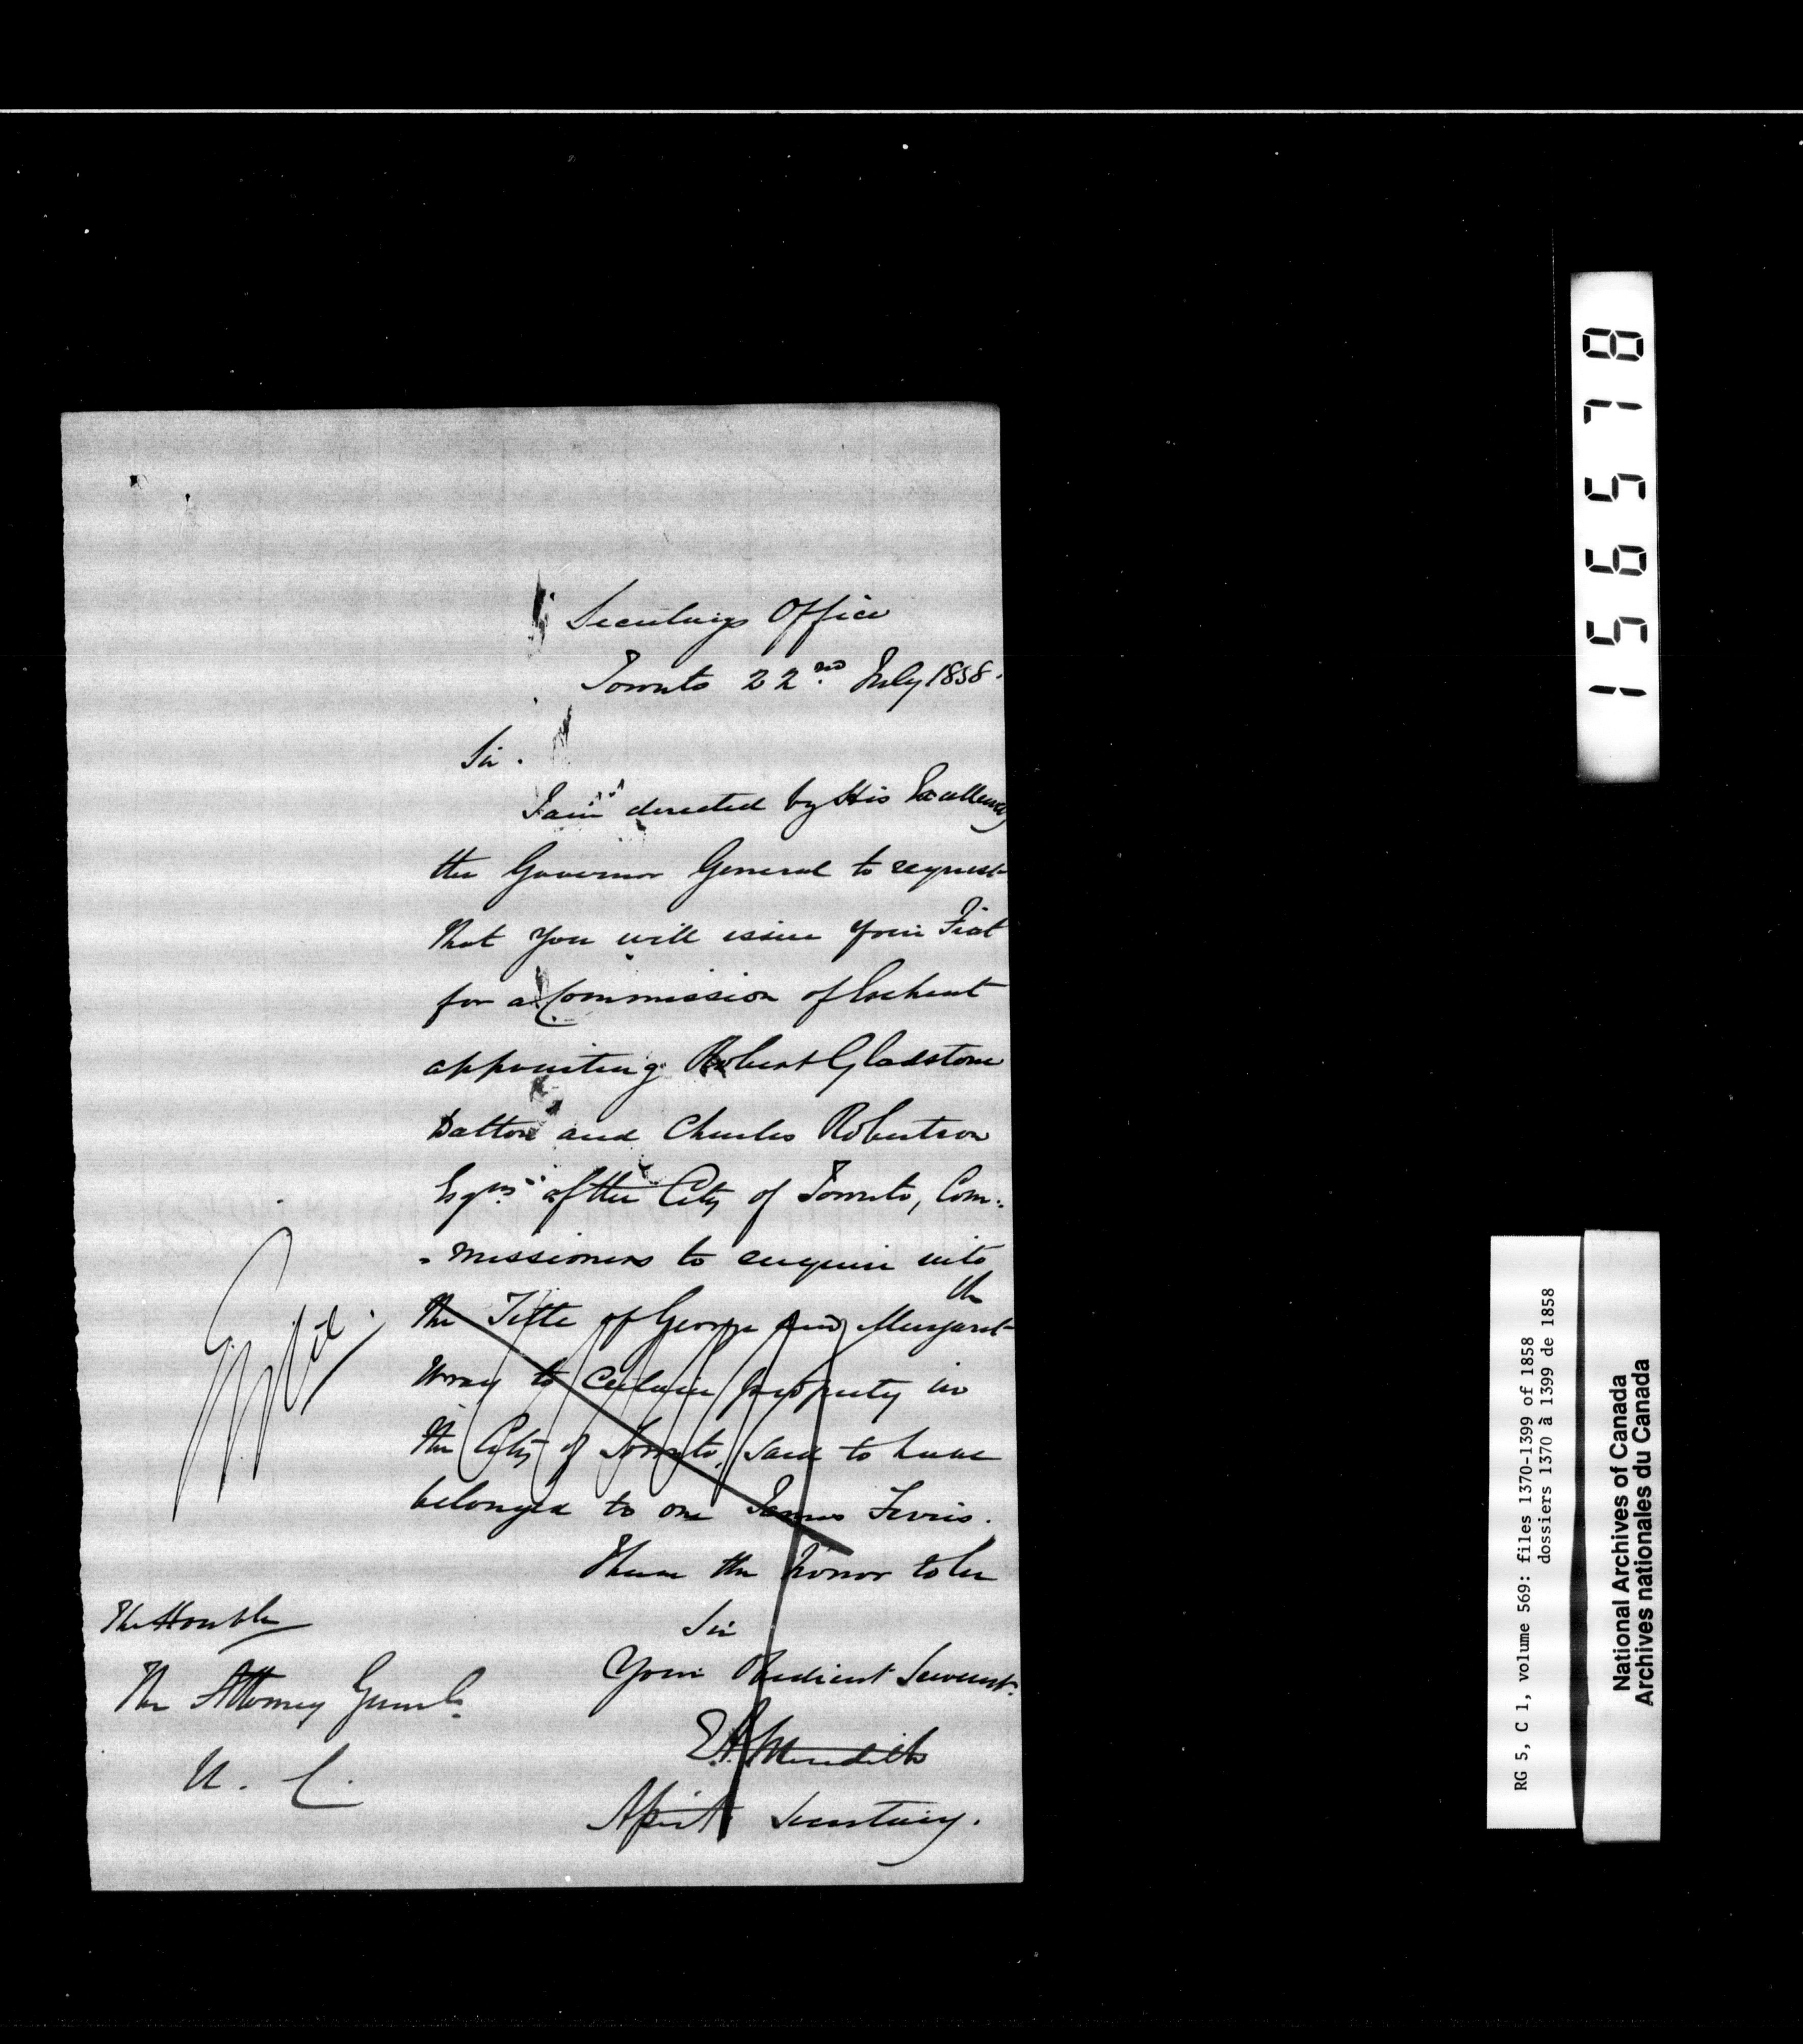 Secretarys Office
Toronto 22nd July 1858.
Sir.
I am directed by His Excellency
the Governor General to request
that you will issue your Fiat
for a Commission of Escheat
appointing Robert Gladstone
Dalton and Charles Robertson
Esqrs of the City of Toronto, Com-
-missioners to enquire into
the
the Title of George and Margaret
Wray to certain property in
the City of Toronto, said to have
belonged to one James Ferris.
I have the honor to be
Sir
Your Obedient Servant.
E A Meredith
Assist Secretary.
The Honble
The Attorney Genl.
U. C.
156578
RG 5, C 1, volume 569: files 1370-1399 of 1858
dossiers 1370 à 1399 de 1858
National Archives of Canada
Archives nationales du Canada